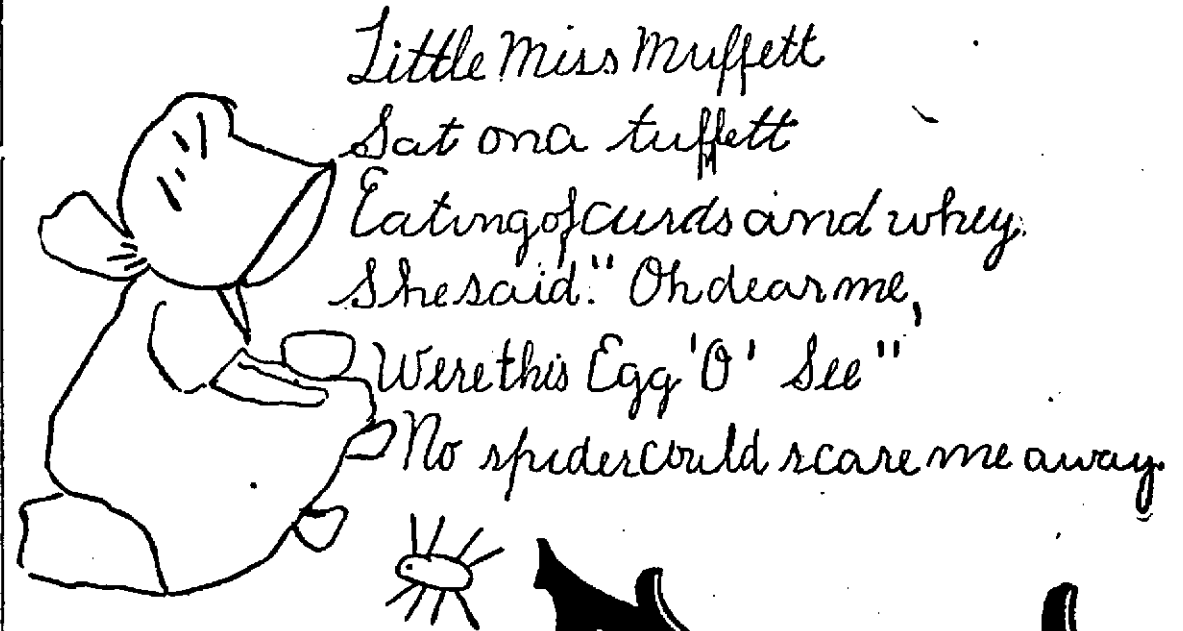 Little Miss Muffett
Sat on a tuffett
Eating of curds and whey.
She said." Oh dear me,
Were this Egg 'O' See"
No spider could scare me away.